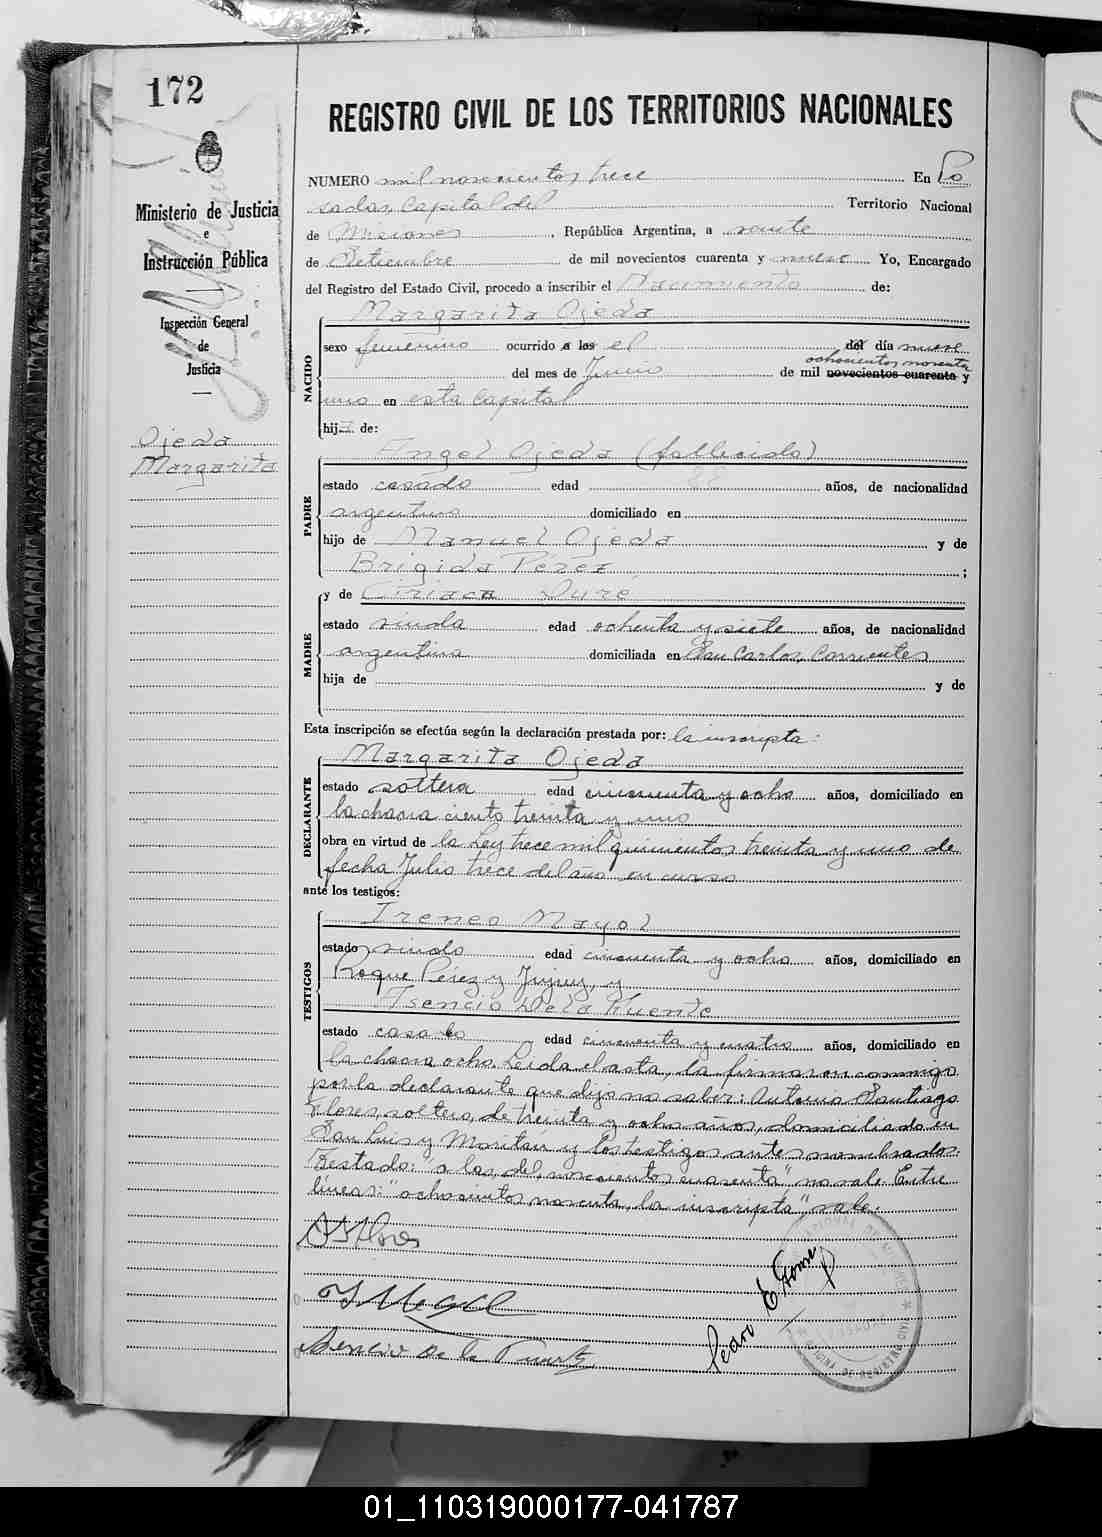 172
REGISTRO CIVIL DE LOS TERRITORIOS NACIONALES
Ministerio de Justicia
e
Instrucción Pública
Inspección General
de
Justicia
Ojeda
Margarita
NUMERO mil novecientos trece En Po
sadas, Capital del Territorio Nacional
de Misiones, República Argentina, a veinte
de Setiembre de mil novecientos cuarenta y nueve Yo, Encargado
del Registro del Estado Civil, procedo a inscribir el Nacimiento de:
Margarita Ojeda
NACIDO
sexo femenino ocurrido a las el del día nueve
ochocientos noventa
del mes de Junio de mil novecientos cuarenta y
uno en esta Capital
hija de:
PADRE
Angel Ojeda (fallecido)
estado casado edad años, de nacionalidad
argentino domiciliado en
hijo de Manuel Ojeda y de
Brigida Pérez ;
MADRE
y de Ciriaca Duré
estado viuda edad ochenta y siete años, de nacionalidad
argentina domiciliada en San Carlos, Corrientes
hija de y de
Esta inscripción se efectúa según la declaración prestada por: la inscripta:
DECLARANTE
Margarita Ojeda
estado soltera edad cincuenta y ocho años, domiciliado en
la chacra ciento treinta y uno
obra en virtud de la Ley trece mil quinientos treinta y uno de
fecha Julio trece del año en curso
ante los testigos:
TESTIGOS
Ireneo Mayol
estado viudo edad cincuenta y ocho años, domiciliado en
Roque Pérez y Jujuy, y
Asencio De la Fuente
estado casado edad cincuenta y cuatro años, domiciliado en
la chacra ocho. Leida el acta, la firmaron conmigo
por la declarante que dijo no saber: Antonio Santiago
Flores, soltero, de treinta y ocho años, domiciliado en
San Luis y Moritan y los testigos antes nombrados:
Testado: "a las, del, novecientos cuarenta" no vale. Entre
líneas: "ochocientos noventa, la inscripta", vale.
ASFlores
Asencio De la Fuente
Pedro E
OFICINA DE REGISTRO CIVIL
01_110319000177-041787